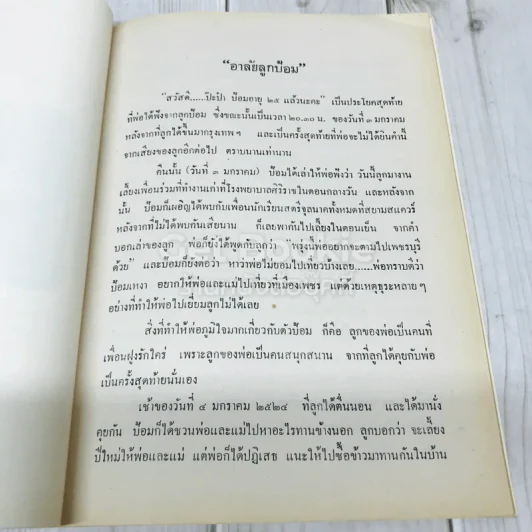 “อาลัยลูกป้อม”
“สวัสดี.....ป๊ะป๋า ป้อมอายุ ๒๕ แล้วนะคะ” เป็นประโยคสุดท้าย
ที่พ่อได้ฟังจากลูกป้อม ซึ่งขณะนั้นเป็นเวลา ๒๐.๓๐ น. ของวันที่ ๓ มกราคม
หลังจากที่ลูกได้ขึ้นมากรุงเทพ ๆ และเป็นครั้งสุดท้ายที่พ่อจะไม่ได้ยินคำนี้
จากเสียงของลูกอีกต่อไป ตราบนานเท่านาน
คืนนั้น (วันที่ ๓ มกราคม) ป้อมได้เล่าให้พ่อฟังว่า วันนี้ลูกมางาน
เลี้ยงเพื่อนร่วมที่ทำงานเก่าที่โรงพยาบาลศิริราชในตอนกลางวัน และหลังจาก
นั้น ป้อมก็เผอิญได้พบกับเพื่อนนักเรียนสตรีจุลนาคทั้งหมดที่สยามสแควร์
หลังจากที่ไม่ได้พบกันเสียนาน ก็เลยพากันไปเลี้ยงในตอนเย็น จากคำ
บอกเล่าของลูก พ่อก็ยังได้พูดกับลูกว่า “พรุ่งนี้พ่ออยากจะตามไปเพชรบุรี
ด้วย” และป้อมก็ยังต่อว่า หาว่าพ่อไม่ยอมไปเที่ยวบ้างเลย.....พ่อทราบดีว่า
ป้อมเหงา อยากให้พ่อและแม่ไปเที่ยวที่เมืองเพชร แต่ด้วยเหตุธุระหลาย ๆ
อย่างที่ทำให้พ่อไปเยี่ยมลูกไม่ได้เลย
สิ่งที่ทำให้พ่อภูมิใจมากเกี่ยวกับตัวป้อม ก็คือ ลูกของพ่อเป็นคนที่
เพื่อนฝูงรักใคร่ เพราะลูกของพ่อเป็นคนสนุกสนาน จากที่ลูกได้คุยกับพ่อ
เป็นครั้งสุดท้ายนั่นเอง
เช้าของวันที่ ๔ มกราคม ๒๕๒๔ ที่ลูกได้ตื่นนอน และได้มานั่ง
คุยกัน ป้อมก็ได้ชวนพ่อและแม่ไปหาอะไรทานข้างนอก ลูกบอกว่า จะเลี้ยง
ปีใหม่ให้พ่อและแม่ แต่พ่อก็ได้ปฏิเสธ แนะให้ไปซื้อข้าวมาทานกันในบ้าน